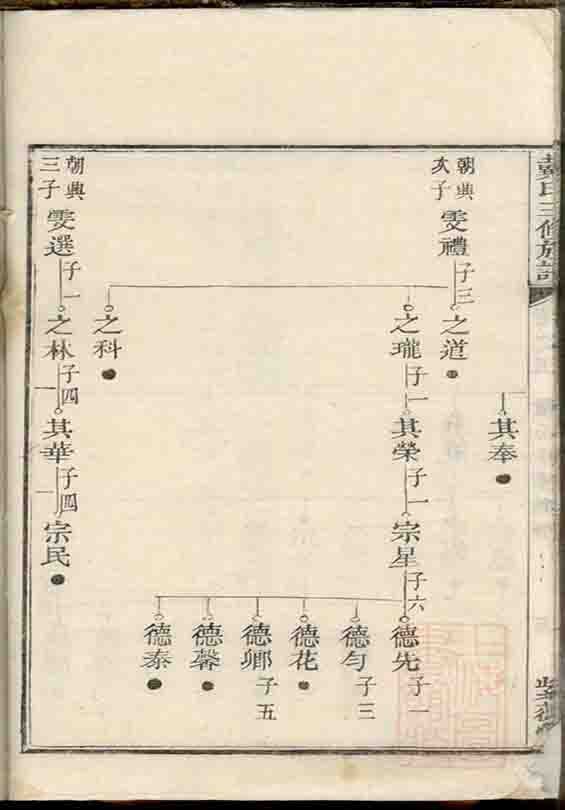 戴氏三修族譜
其奉
朝典
次子
雯禮
子三
之道
之瓏
子一
其榮
子一
宗星
子六
德先
子一
德勻
子三
德花
德卿
子五
德馨
德泰
之科
朝典
三子
雯選
子一
之林
子四
其華
子四
宗民